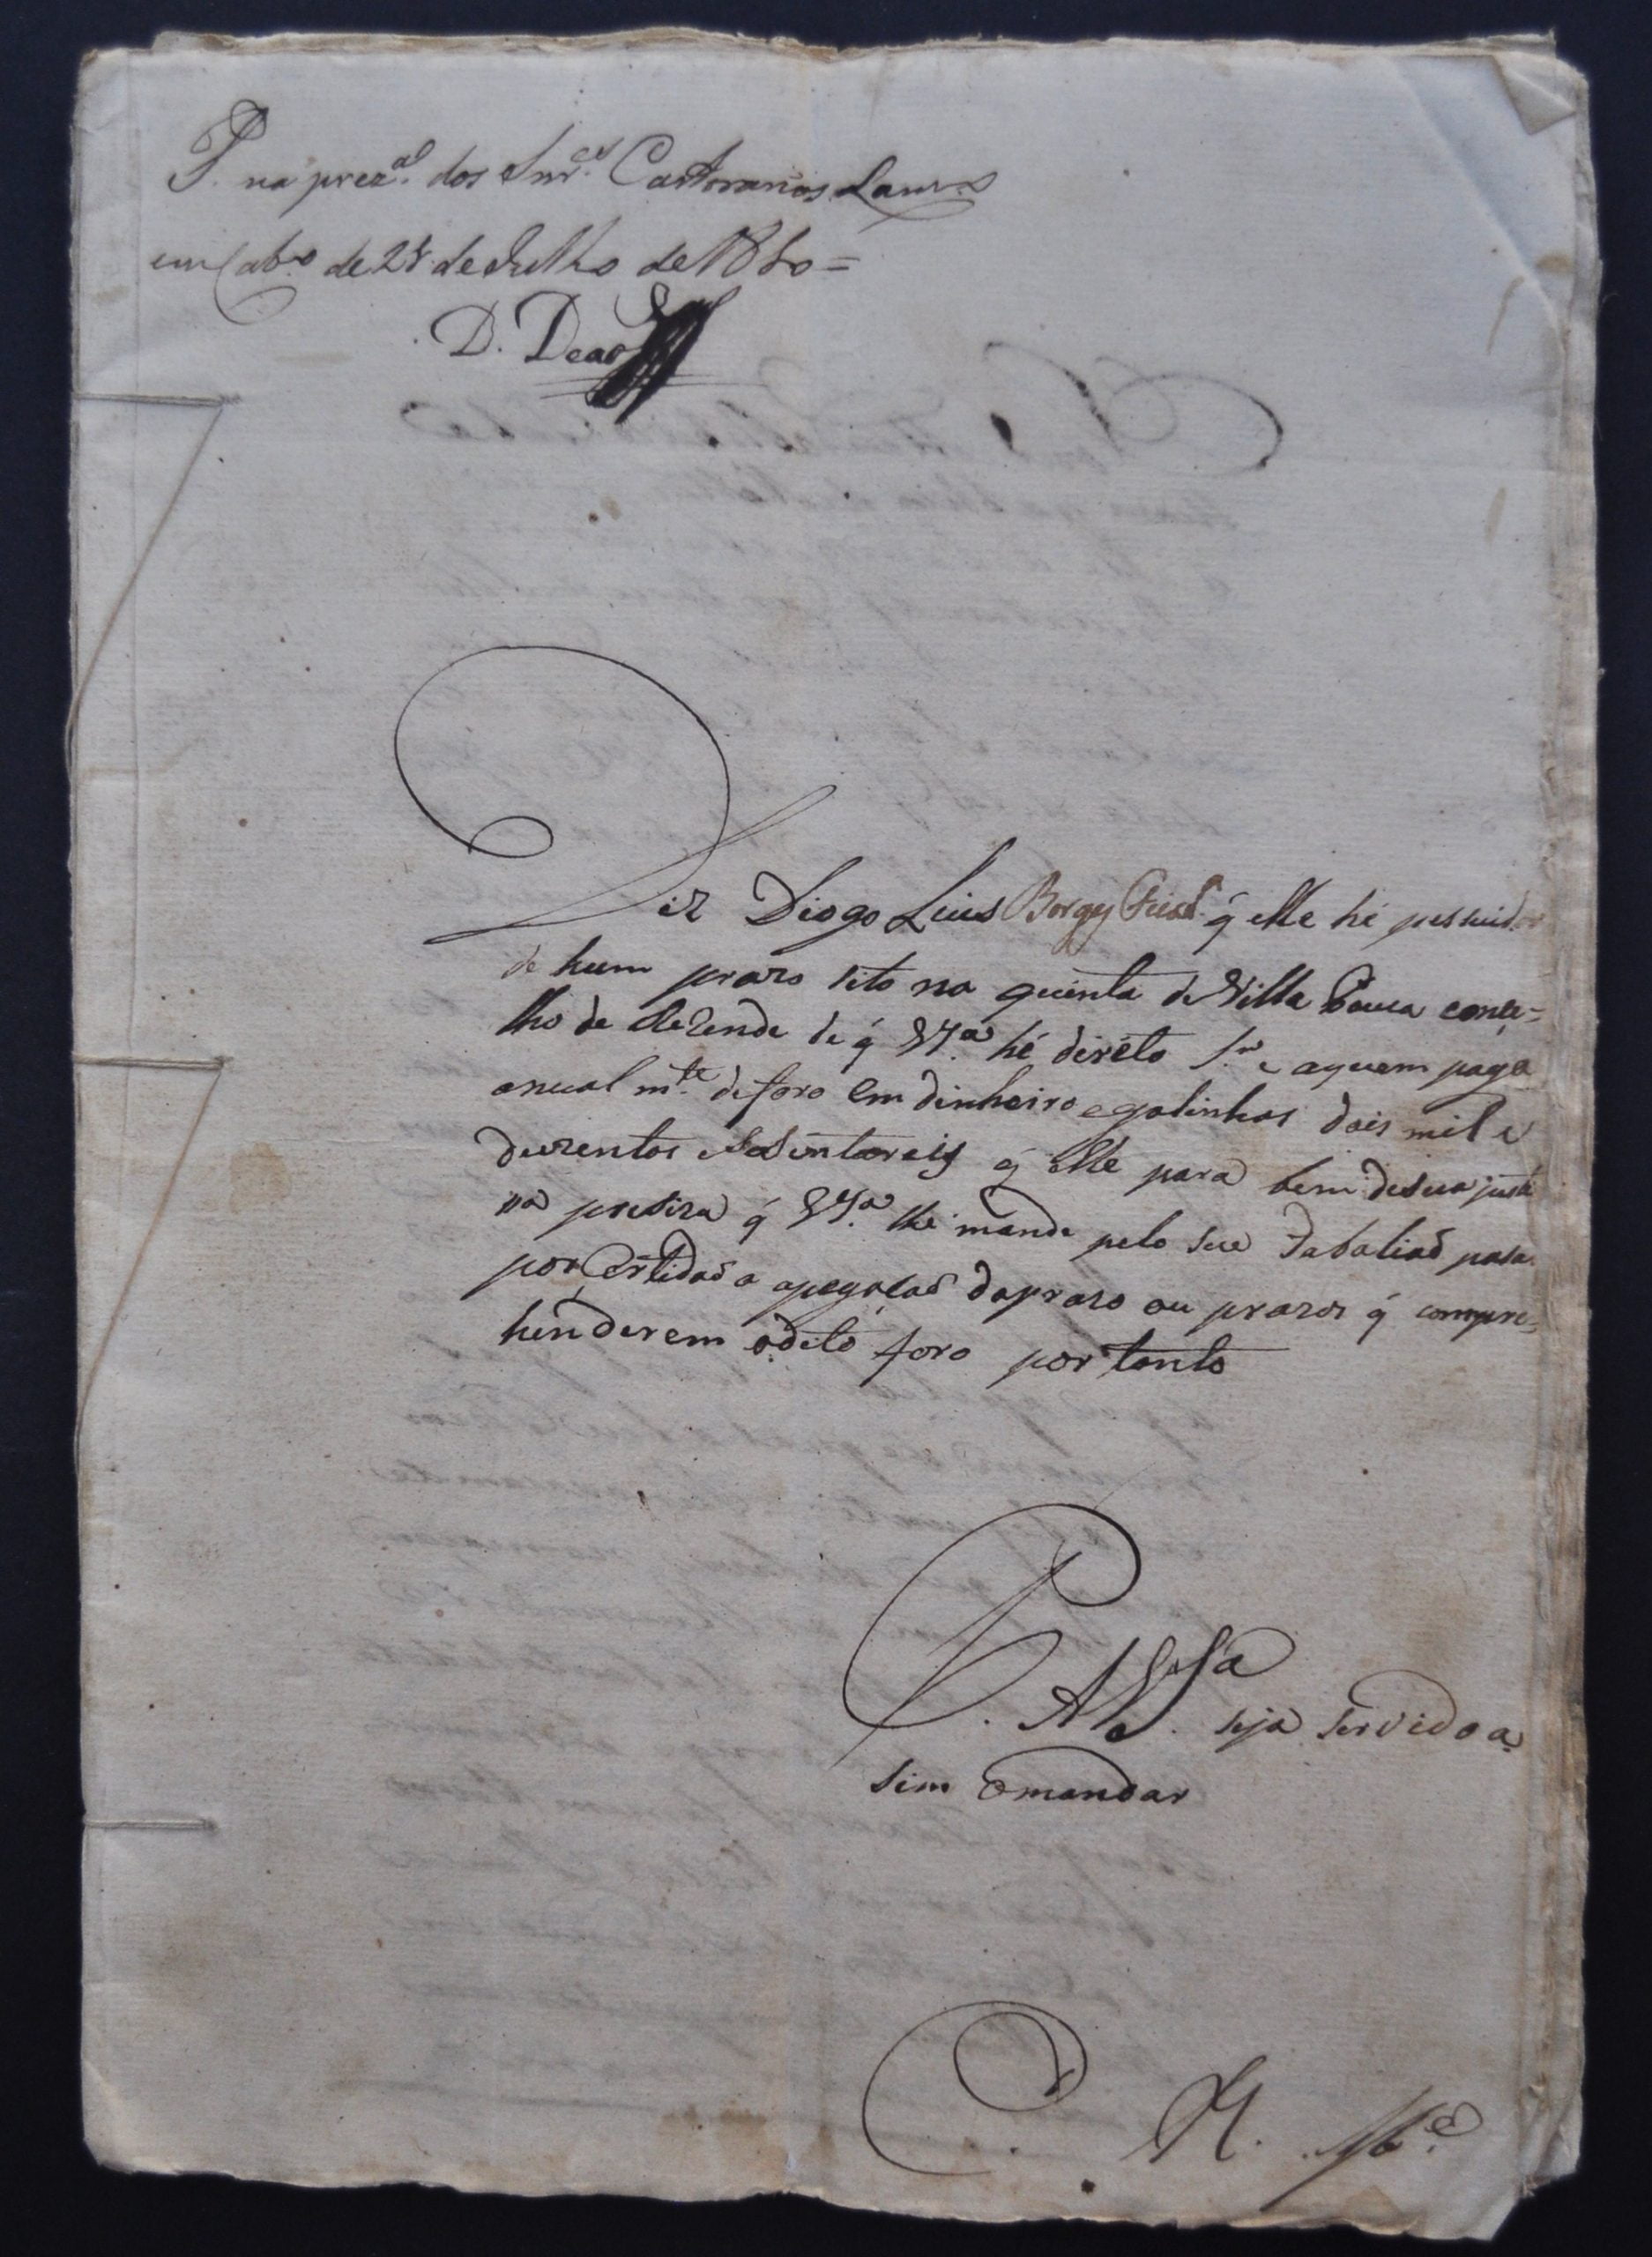 P. na prez.al dos Snr.es Cartorarios Lam.
em Cab.o de 28 de Julho de =
D. Deao
Diz Diogo Luis Borges q̃ elle hé pessuidor
de hum prazo sito na quinta de Villa Pouca conçe=
lho de Rezende de q̃ VS.a hé diréto S.r e aquem paga
anual m.te de foro em dinheiro e galinhas dois mil e
duzentos e sesenta reis q̃ elle para bem de sua justi
na preciza q̃ VS.a lhe mande pelo seu Tabaliaõ pasar
por Certidaõ a apegacaõ do prazo ou prazos q̃ compre=
henderem o dito foro por tanto
P. A VS.a seja servido a
sim o mandar
E. R. M.ce